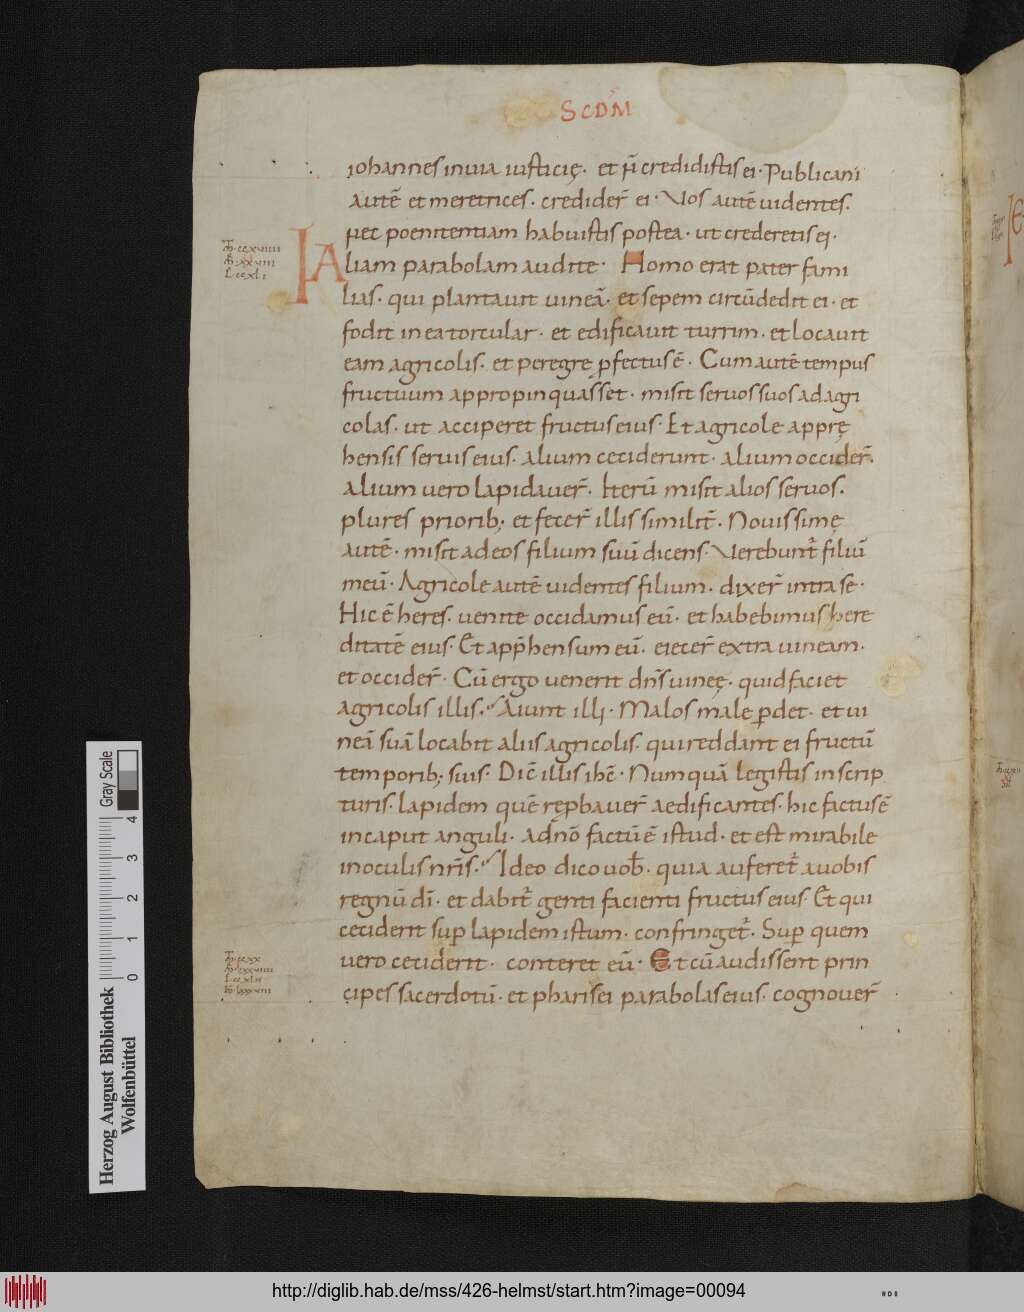 SCDM
iohannes in via iusticię. et n̄ credidistis ei· Publicani
Autē et meretrices. crediderˉ ei· Vos autē videntes.
nec poenitentiam habuistis postea. ut crederetis ei·
Aliam parabolam audite· Homo erat pater fami
lias. qui plantavit vineā. et sepem circūdedit ei· et
fodit in ea torcular. et edificavit turrim. et locavit
eam agricolis. et peregre ꝓfectus ē· Cum autē tempus
fructuum appropinquasset. misit servos suos ad agri
colas. ut acciperet fructus eius· Et agricole apprę
hensis servis eius. alium ceciderunt. alium occiderˉ.
Alium vero lapidaverˉ. Iterū misit alios servos.
plures priorib; et fecerˉ illis similitˉ. Novissimę
autē. misit ad eos filium suū dicens· Verebuntˉ filiū
meū· Agricole autē videntes filium. dixerˉ intra se·
Hic ē heres. venite occidamus eū. et habebimus here
ditatē eius· Et app̄hensum eū. eiecerˉ extra vineam.
et occiderˉ· Cū ergo venerit dn̄s vineę. quid faciet
agricolis illis. Aiunt illi· Malos male ꝑdet. et vi
neā suā locabit aliis agricolis. qui reddant ei fructū
temporib; suis· Dic̄ illis ihc̄· Numquā legistis in scrip
turis. lapidem quē reꝑbaverˉ aedificantes. hic factus ē
in caput anguli. a dn̄o factū ē istud. et est mirabile
in oculis nr̄is. Ideo dico vob̄. quia auferetˉ a vobis
regnū dī. et dabitˉ genti facienti fructus eius· Et qui
ceciderit suꝑ lapidem istum. confringetˉ. Suꝑ quem
vero ceciderit. conteret eū· Et cū audissent prin
cipes sacerdotū. et pharisei parabolas eius. cognoverˉ
Gray Scale
0 1 2 3 4
Herzog August Bibliothek
Wolfenbüttel
http://diglib.hab.de/mss/426-helmst/start.htm?image=00094